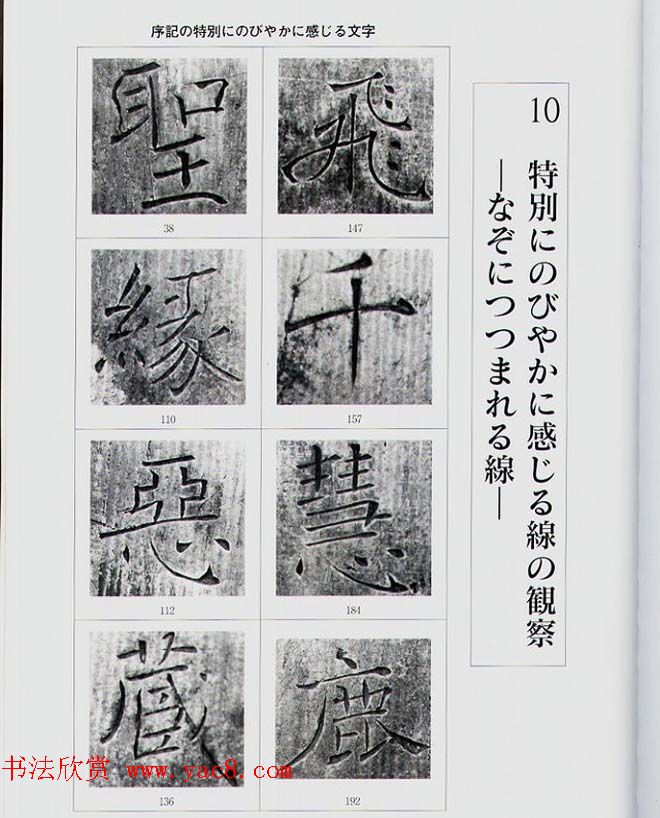 序記の特別にのびやかに感じる文字
10 特別にのびやかに感じる線の観察
―なぞにつつまれる線―
聖
38
飛
147
縁
110
千
157
惡
112
慧
184
蔵
136
鹿
192
书法欣赏 www.yac8.com